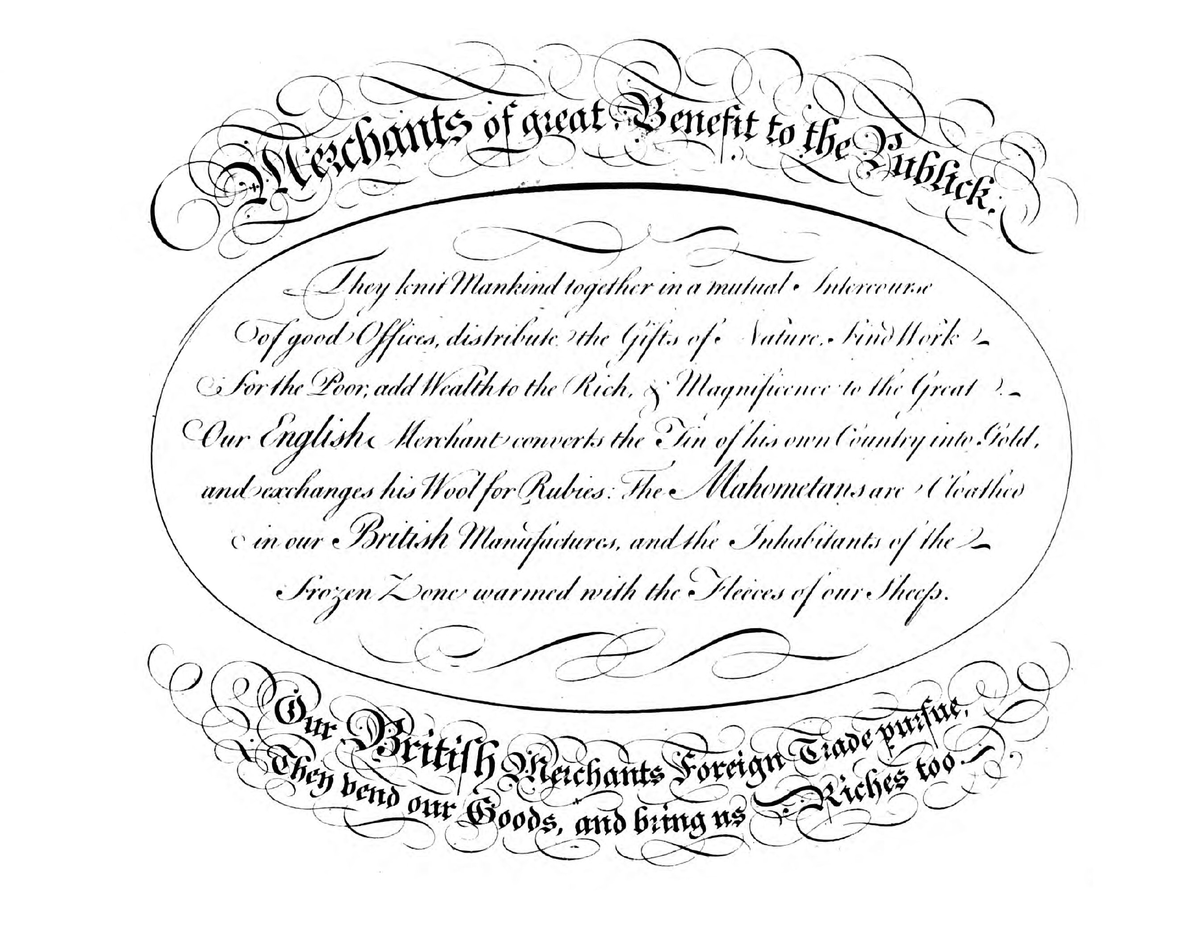 Merchants of great Benefit to the Publick.
They knit Mankind together in a mutual Intercourse
of good Offices, distribute the Gifts of Nature, find Work
for the Poor, add Wealth to the Rich, & Magnificence to the Great.
Our English Merchant converts the Tin of his own Country into Gold,
and exchanges his Wool for Rubies: The Mahometans are Cloathed
in our British Manufactures, and the Inhabitants of the
Frozen Zone warmed with the Fleeces of our Sheep.
Our Britiſh Merchants Foreign Trade purſue,
They vend our Goods, and bring us Riches too.